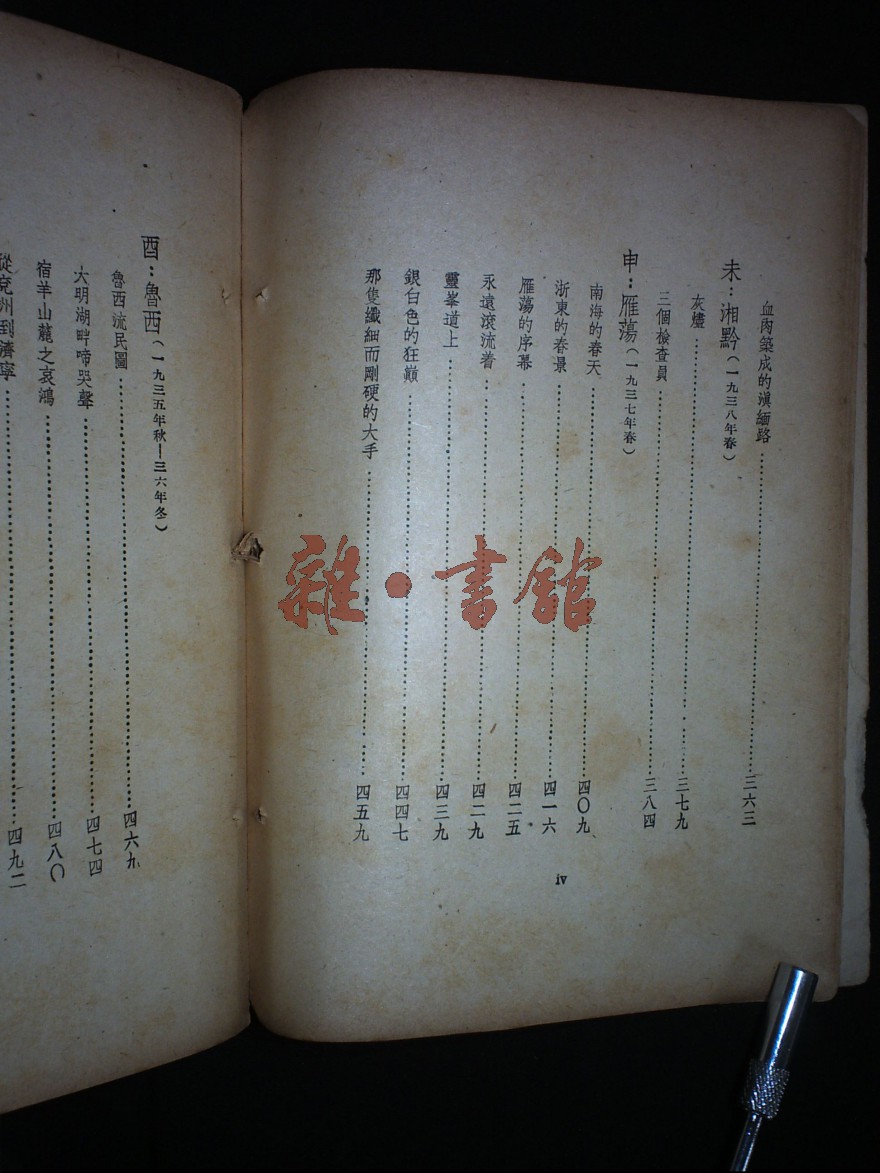 血肉築成的滇緬路……三六三
未：湘黔（一九三八年春）
灰燼……三七九
三個檢查員……三八四
申：雁蕩（一九三七年春）
南海的春天……四〇九
浙東的春景……四一六
雁蕩的序幕……四二五
永遠滾流着……四二九
靈峯道上……四三九
銀白色的狂巔……四四七
那隻纖細而剛硬的大手……四五九
iv
酉：魯西（一九三五年秋—三六年冬）
魯西流民圖……四六九
大明湖畔啼哭聲……四七四
宿羊山麓之哀鴻……四八〇
從兗州到濟寧……四九二
雜·書館